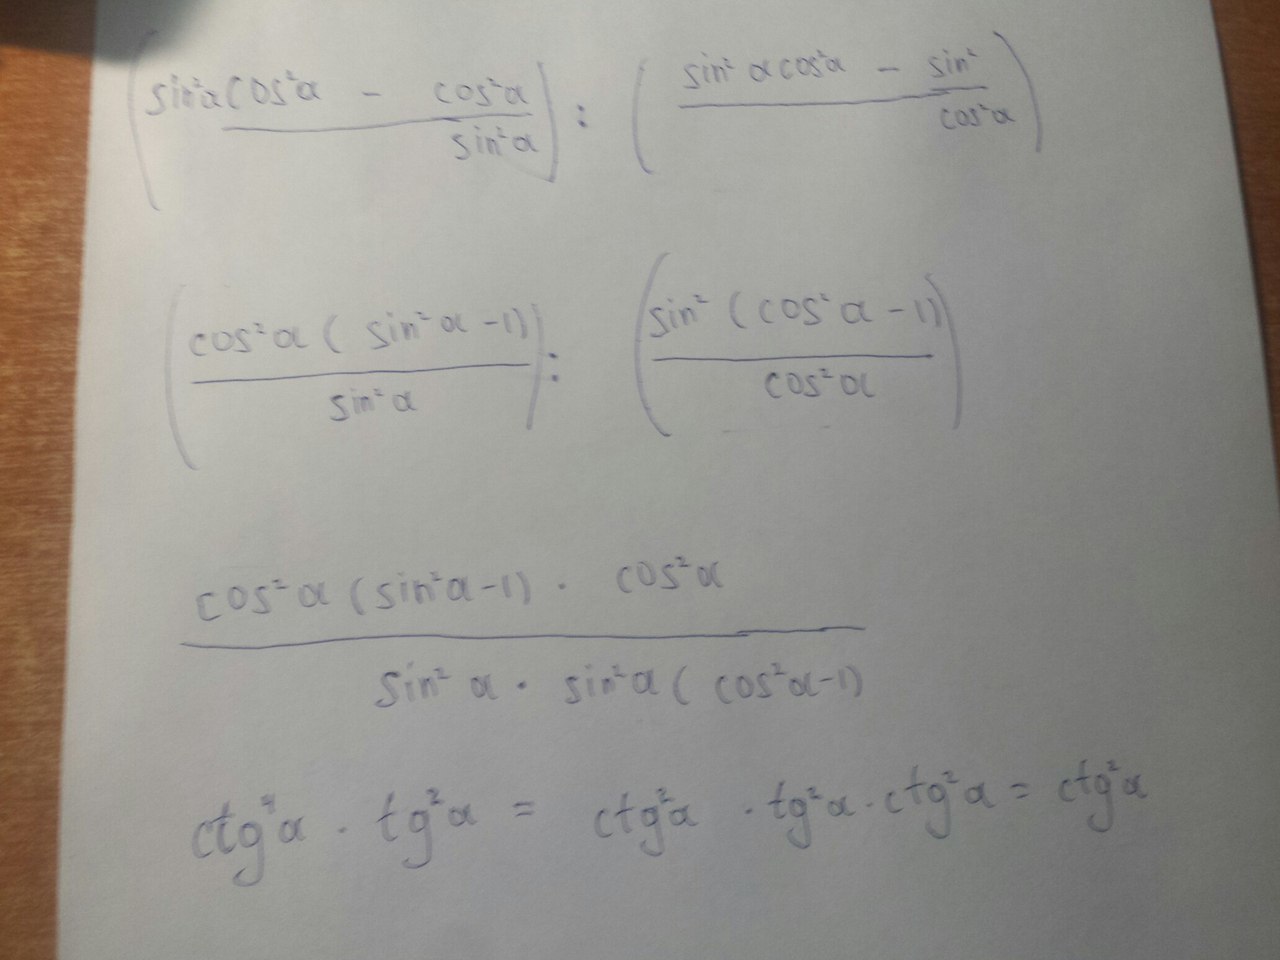 (sin²α cos²α - cos²α / sin²α) : (sin²α cos²α - sin² / cos²α)
(cos²α (sin²α - 1) / sin²α) : (sin² (cos²α - 1) / cos²α)
cos²α (sin²α - 1) · cos²α
sin²α · sin²α (cos²α - 1)
ctg⁴α · tg²α = ctg²α · tg²α · ctg²α = ctg²α